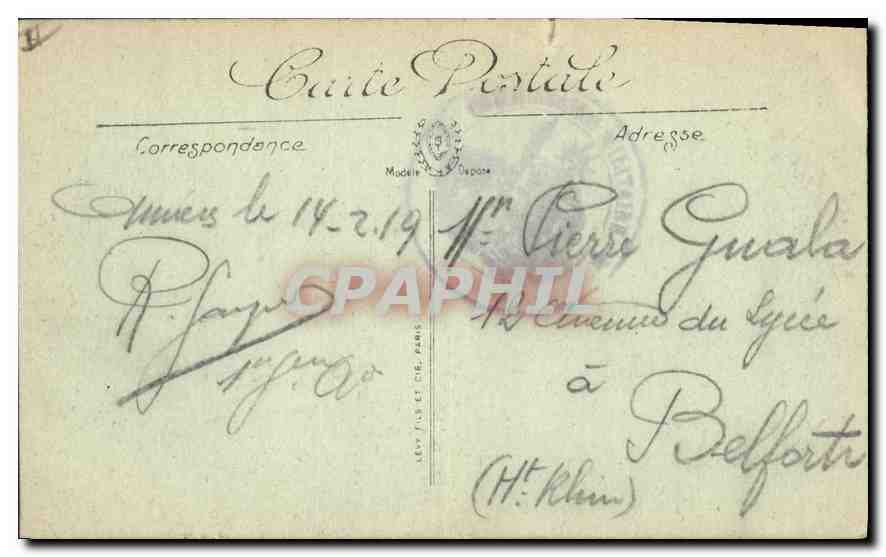 Carte Postale
Correspondance
Adresse
Modèle Déposé
le 14-2.19
Mr Pierre Guala
12 Avenue du Lycée
à
Belfort
(Ht. Rhin)
LÉVY FILS ET CIE, PARIS
CPAPHIL